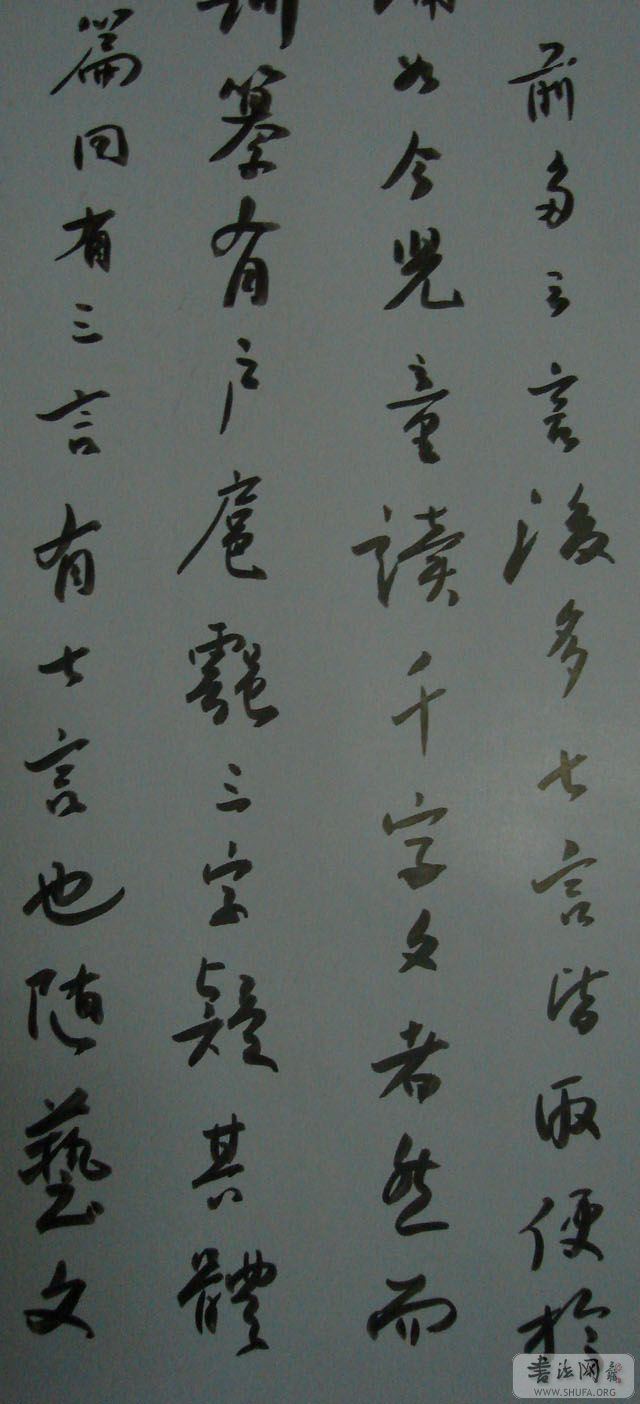 前多三言後多七言皆取便於
誦如今兒童讀千字文者然而
訓纂有户扈鄠三字疑其體
篇同有三言有七言也隨藝文
書法网
WWW.SHUFA.ORG